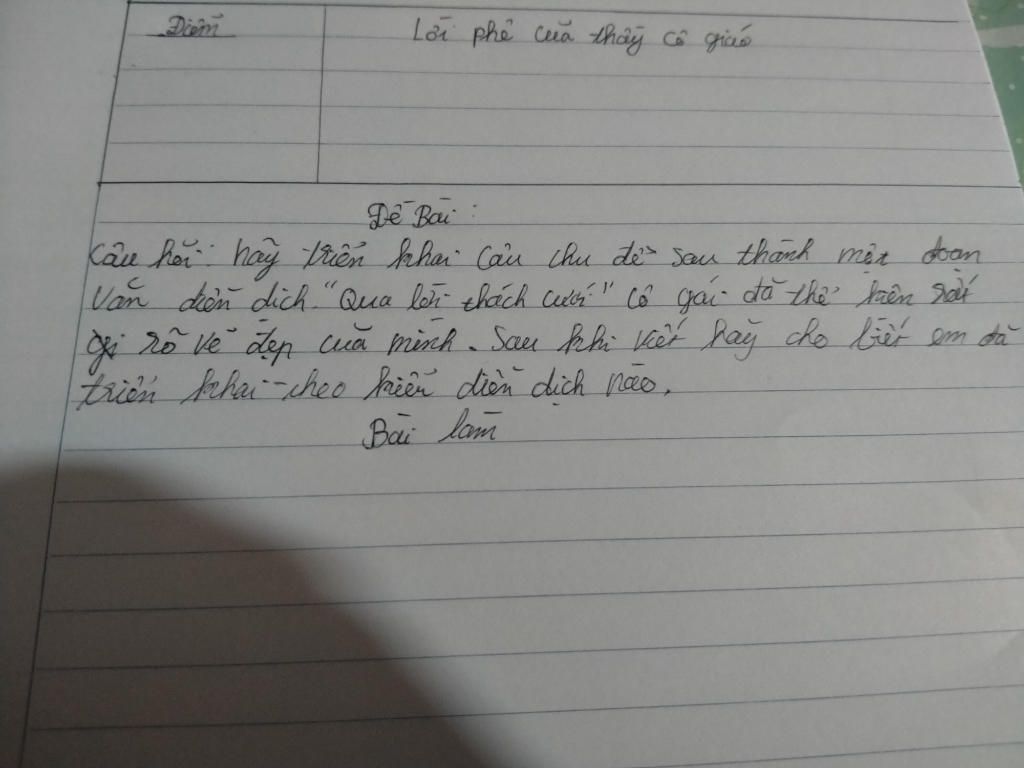 Điểm
Lời phê của thầy cô giáo
Đề Bài:
Câu hỏi: hãy triển khai câu chu đề sau thành một đoạn
văn diễn dịch "Qua lời thách cưới" cô gái đã thể hiện rất
gi rõ vẻ đẹp của mình. Sau khi viết hãy cho biết em đã
triển khai theo kiểu diễn dịch nào.
Bài làm